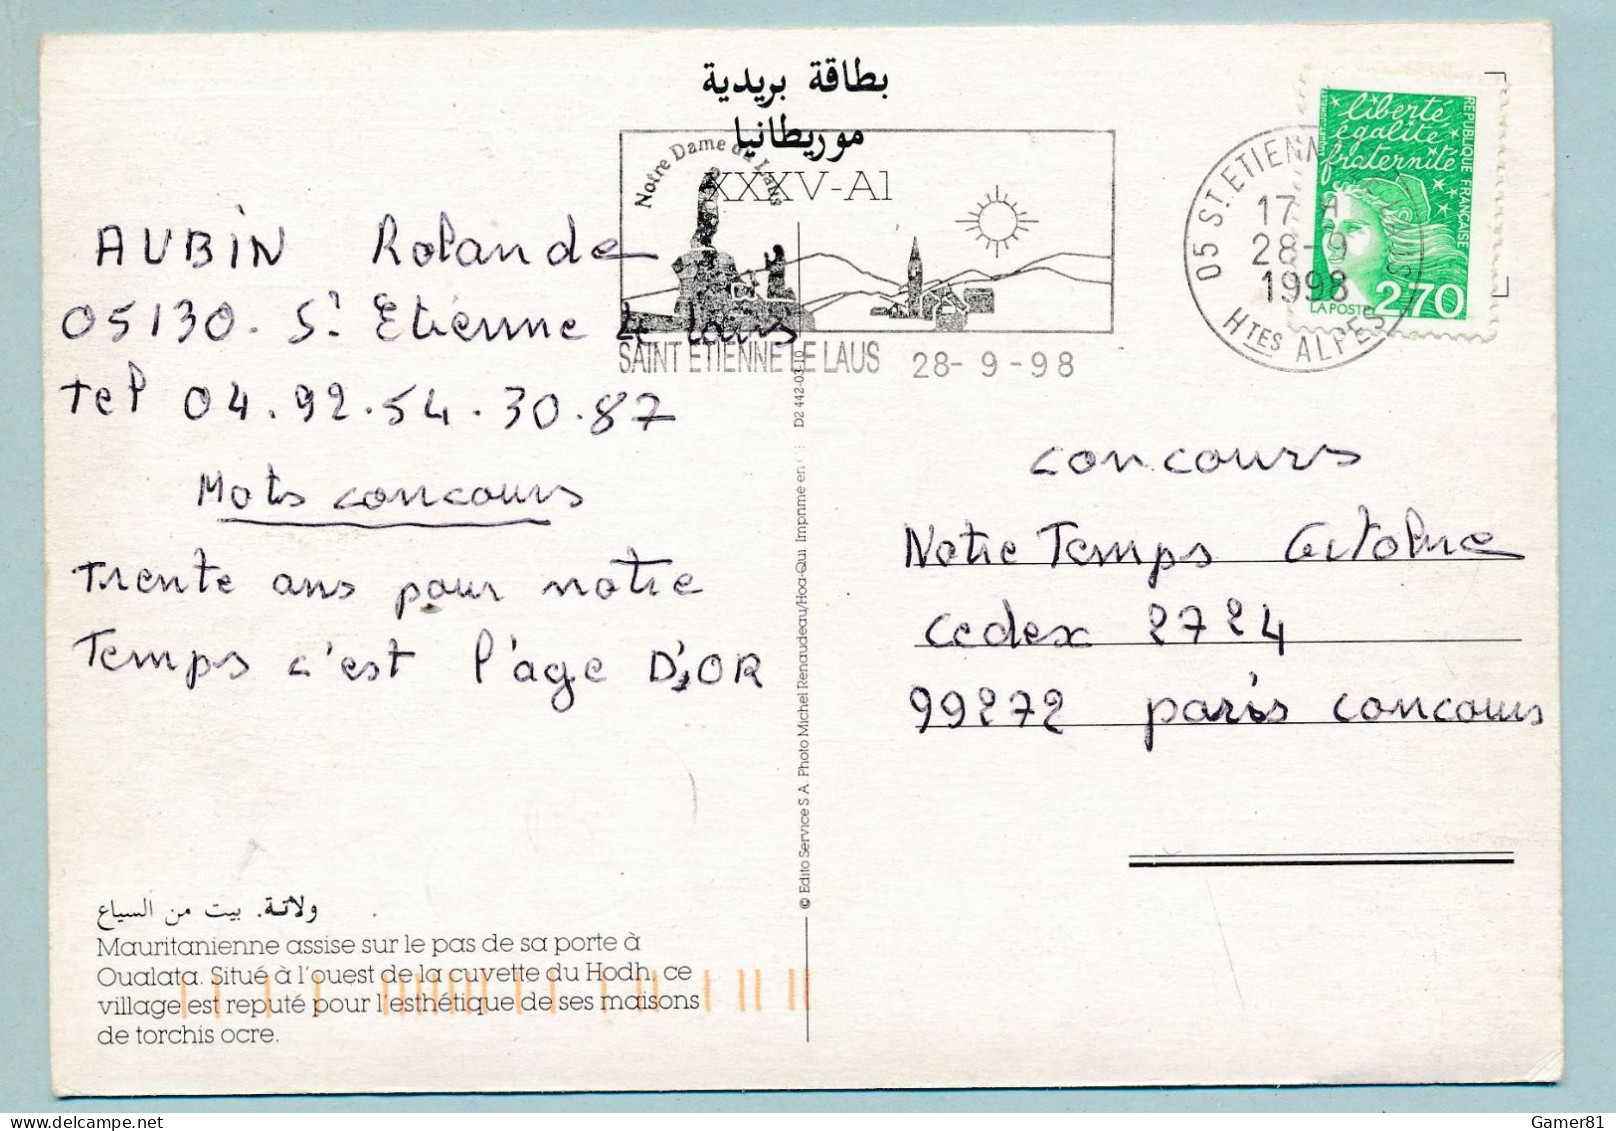 بطاقة بريدية
موريطانيا
XXXV-A1
Notre Dame du Laus
SAINT ETIENNE LE LAUS 28-9-98
05 ST ETIENNE LE LAUS
17 H
28-9
1998
HTES ALPES
liberté
égalité
fraternité
REPUBLIQUE FRANÇAISE
LA POSTE 2,70
AUBIN Rolande
05130. St Etienne le Laus
Tel 04.92.54.30.87
Mots concours
Trente ans pour notre
Temps c'est l'age D'OR
concours
Notre Temps Octobre
cedex 2724
99272 paris concours
© Edito Service S.A. Photo Michel Renaudeau/Hoa-Qui Imprimé en D2 442-03-10
ولاتة. بيت من السياع
Mauritanienne assise sur le pas de sa porte à
Oualata. Situé à l'ouest de la cuvette du Hodh, ce
village est reputé pour l'esthétique de ses maisons
de torchis ocre.
Gamer81